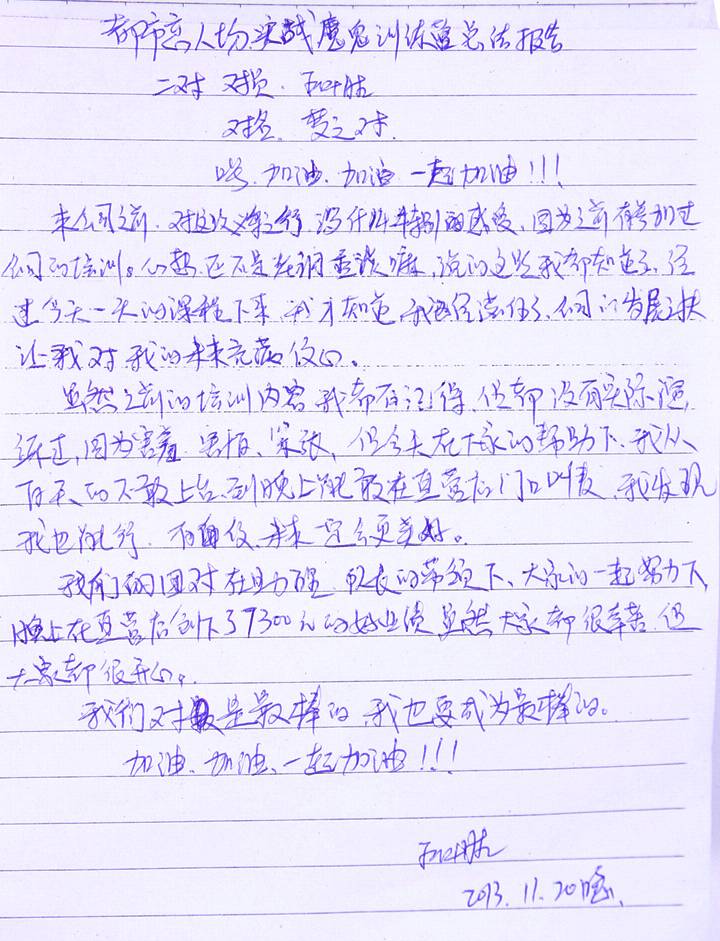 都市恋人场实战魔鬼训练营总结报告
二对 对员.
对名. 梦之对.
嘿.加油.加油 一起加油!!!
来公司之前.对这次义乌之行.没什么特别的感受.因为之前有参加过
公司的培训。心想.还不是在讲重谈嘛.说的这些我都知道了.经
过今天一天的课程下来.我才知道.我语经落伍了.公司的发展之快
让我对我的未来充满信心。
虽然之前的培训内容我都有记得.但都没有实际演
练过.因为害羞 害怕、紧张、但今天在大家的帮助下.我从
白天的不敢上台.到晚上能敢在直营店门口叫麦.我发现
我也能行.有自信.未来一定会更美好。
我们的团对在 队长的带领下、大家的一起努力下,
晚上在直营店创下了7300元的好业绩 虽然大家都很辛苦.但
大家都很开心。
我们对是最棒的.我也要成为最棒的。
加油、加油、一起加油!!!
2013.11.20晚.